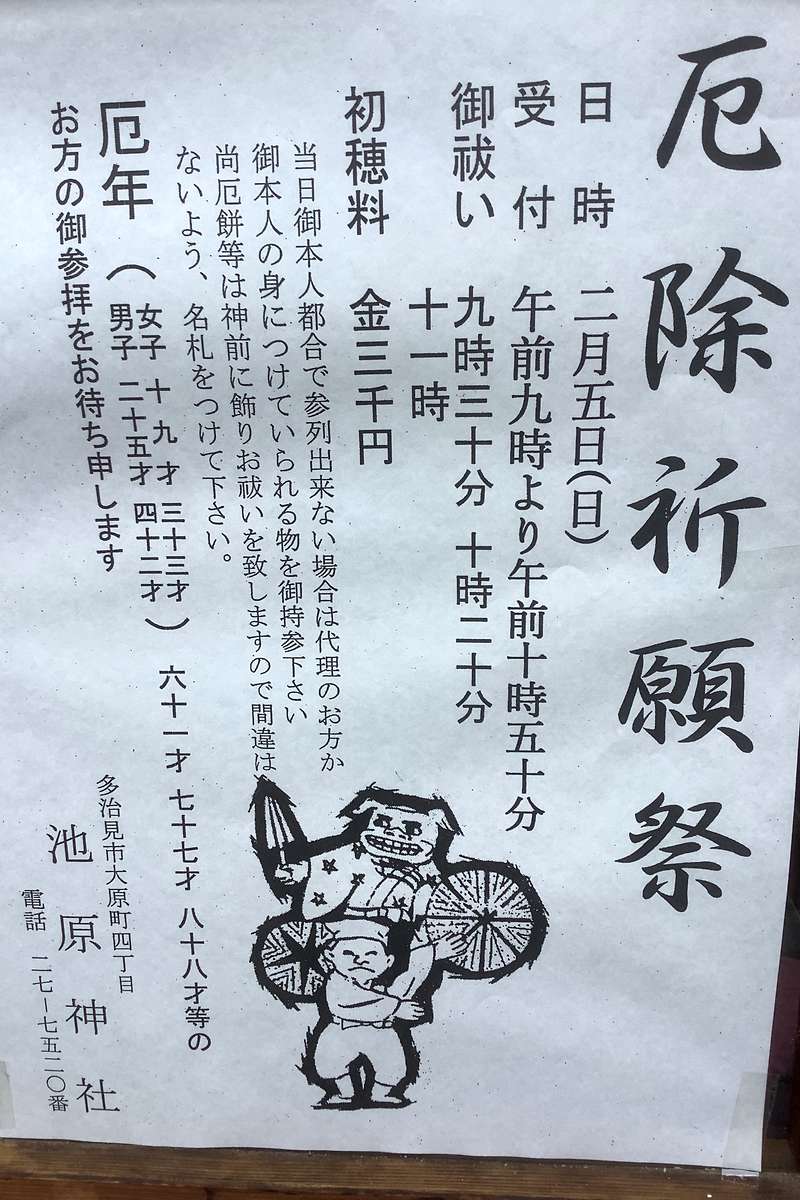 厄除祈願祭
日時 二月五日(日)
受付 午前九時より午前十時五十分
御祓い 九時三十分 十時二十分
十一時
初穂料 金三千円
当日御本人都合で参列出来ない場合は代理のお方か
御本人の身につけていられる物を御持参下さい
尚厄餅等は神前に飾りお祓いを致しますので間違は
ないよう、名札をつけて下さい。
厄年(女子 十九才 三十三才
男子 二十五才 四十二才) 六十一才 七十七才 八十八才等の
お方の御参拝をお待ち申します
多治見市大原町四丁目
池原神社
電話 二七ー七五二〇番